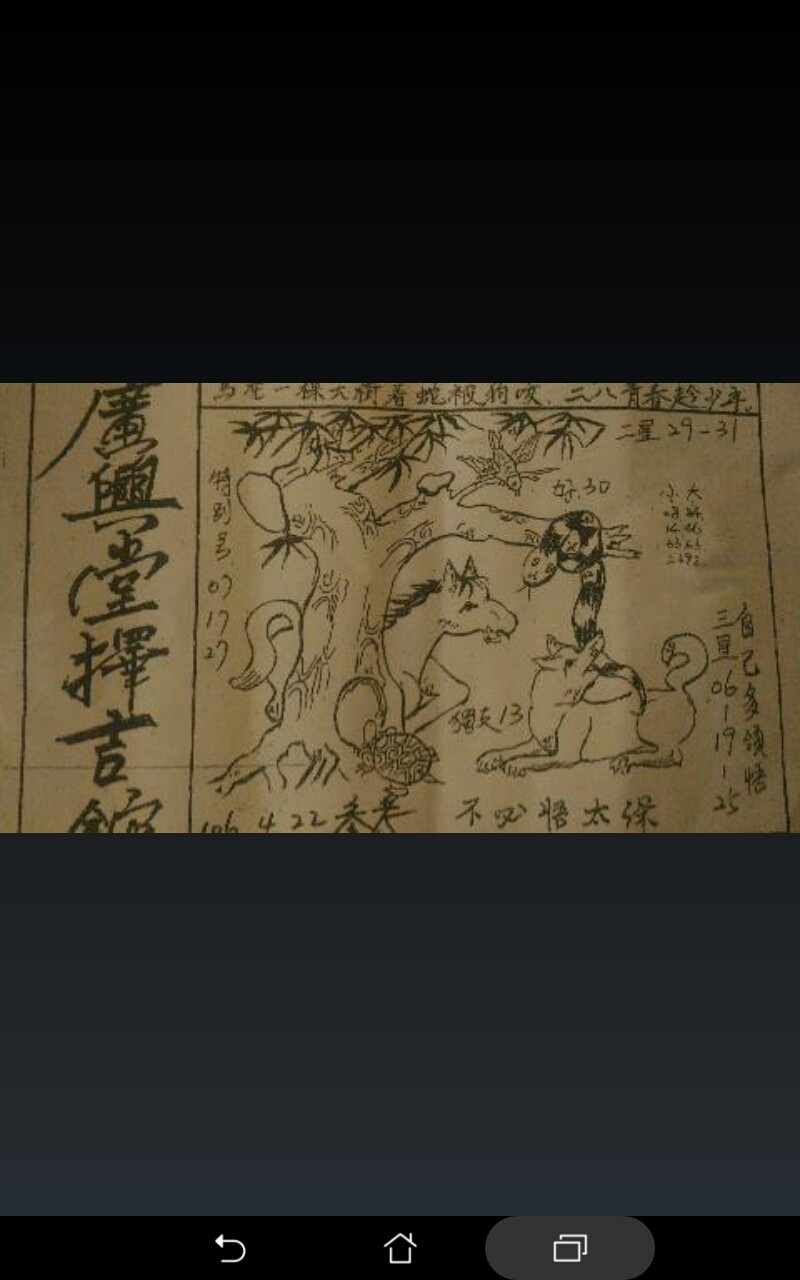 廣興堂擇吉館
馬 一棵大樹看蛇被狗咬、二八青春趁少年。
二星 29-31
好.30
特別号
07
17
27
小 大
獨支 13
自己多領悟
三星
06
-
19
-
25
106 4 22 参考
不必悟太深